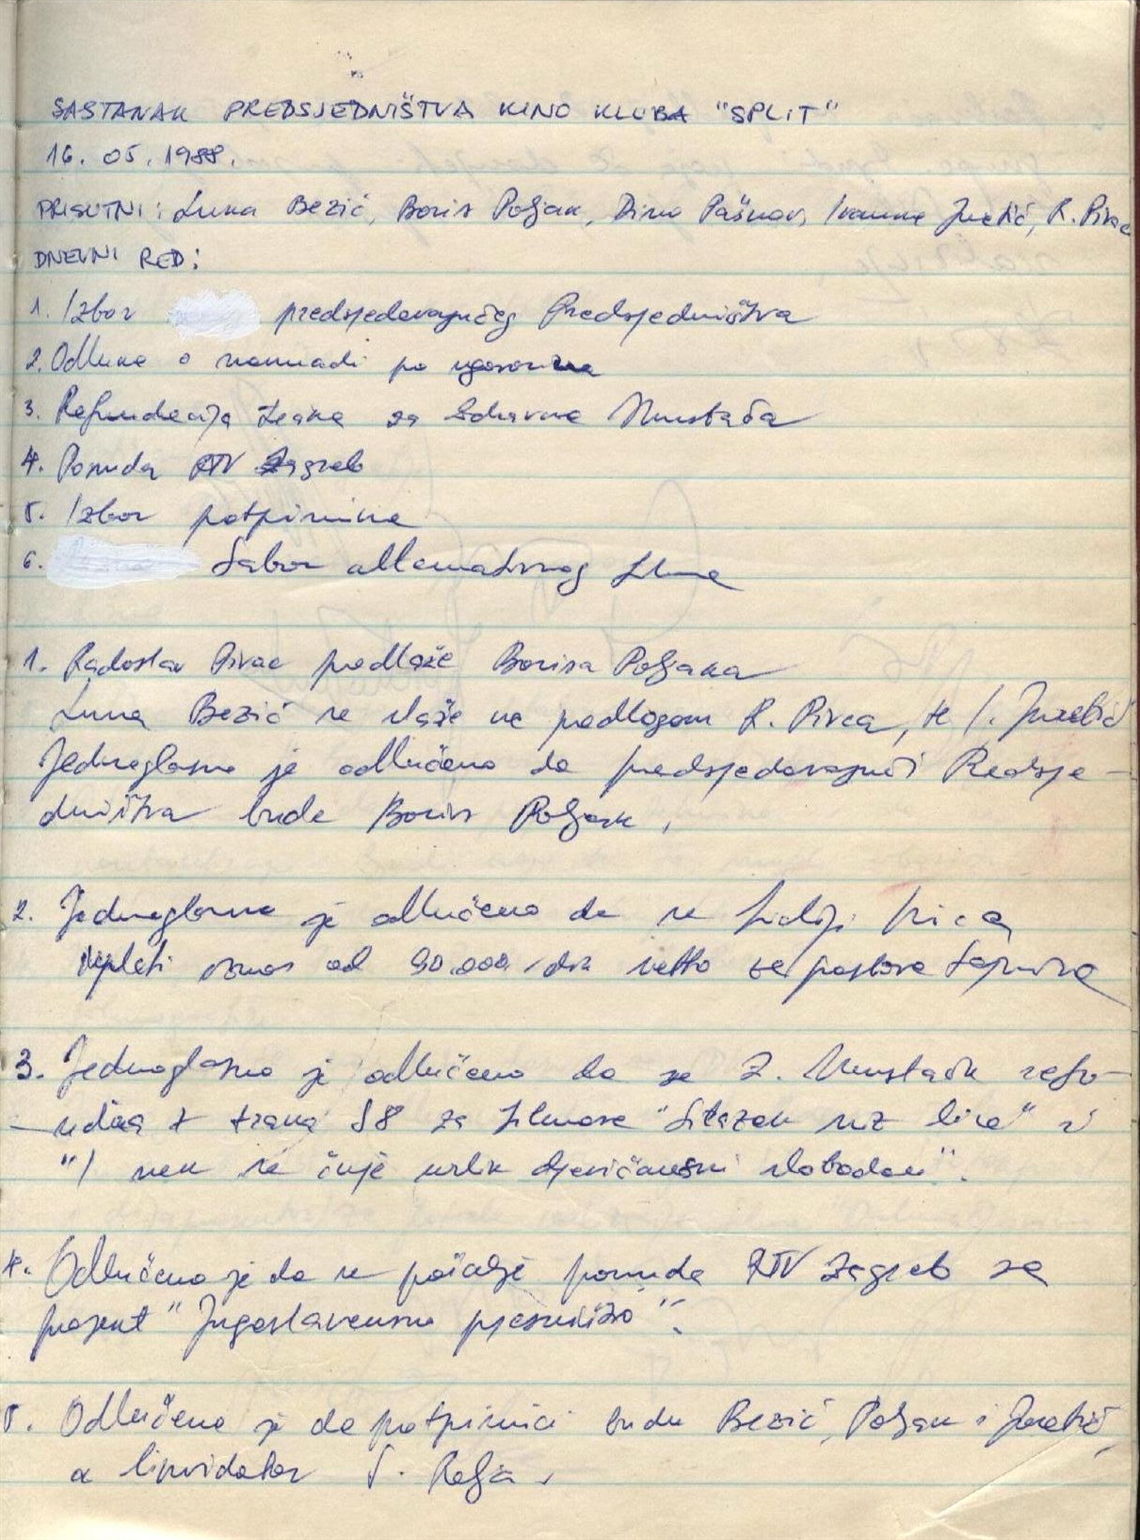 SASTANAK PREDSJEDNIŠTVA KINO KLUBA "SPLIT"
16. 05. 1988.
PRISUTNI: Luka Bezić, Boris Poljak, Dino Pašnov, Ivanka Juretić, R. Pivac
DNEVNI RED:
1. Izbor predsjedavajućeg Predsjedništva
2. Odluka o naknadi po ugovorima
3. Refundacija traka za Zdravka Mustaća
4. Ponuda RTV Zagreb
5. Izbor potpisnika
6. Sabor alternativnog filma
1. Radoslav Pivac predlaže Borisa Poljaka
Luka Bezić se slaže sa predlogom R. Pivca, te I. Juretić
Jednoglasno je odlučeno da predsjedavajući Predsje-
dništva bude Boris Poljak.
2. Jednoglasno je odlučeno da se Lidiji
isplati iznos od 90.000 din netto za poslove tajnika
3. Jednoglasno je odlučeno da se Z. Mustać refu-
ndira 7 traka S8 za filmove "Silazak niz lice" i
"I nek se čuje urlik djevičanski slobodan".
4. Odlučeno je da se pošalje ponuda RTV Zagreb za
projekt "Jugoslavensko pjesništvo".
5. Odlučeno je da potpisnici budu Bezić, Poljak i Juretić,
a likvidator S. Relja.